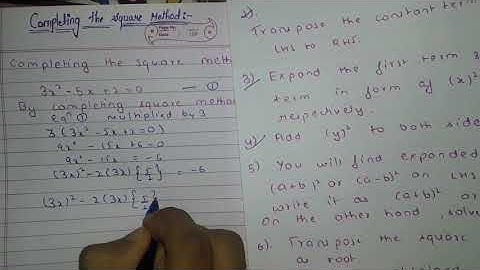 Completing the square Method:-
Completing the square meth
3x² - 5x + 2 = 0 — ①
By completing square metho
eqⁿ ① multiplied by 3
3(3x² - 5x + 2 = 0)
9x² - 15x + 6 = 0
9x² - 15x = -6
(3x)² - 2(3x){5/2} = -6
(3x)² - 2(3x){5/2}
2).
Transpose the constant term
LHS to RHS.
3) Expand the first term &
term in form of (x)²
respectively.
4) Add (y)² to both side
5) You will find expand
(a+b)² or (a-b)² on LHS
write it as (a+b)² or
on the other hand, solve
6). Transpose the square
as root.